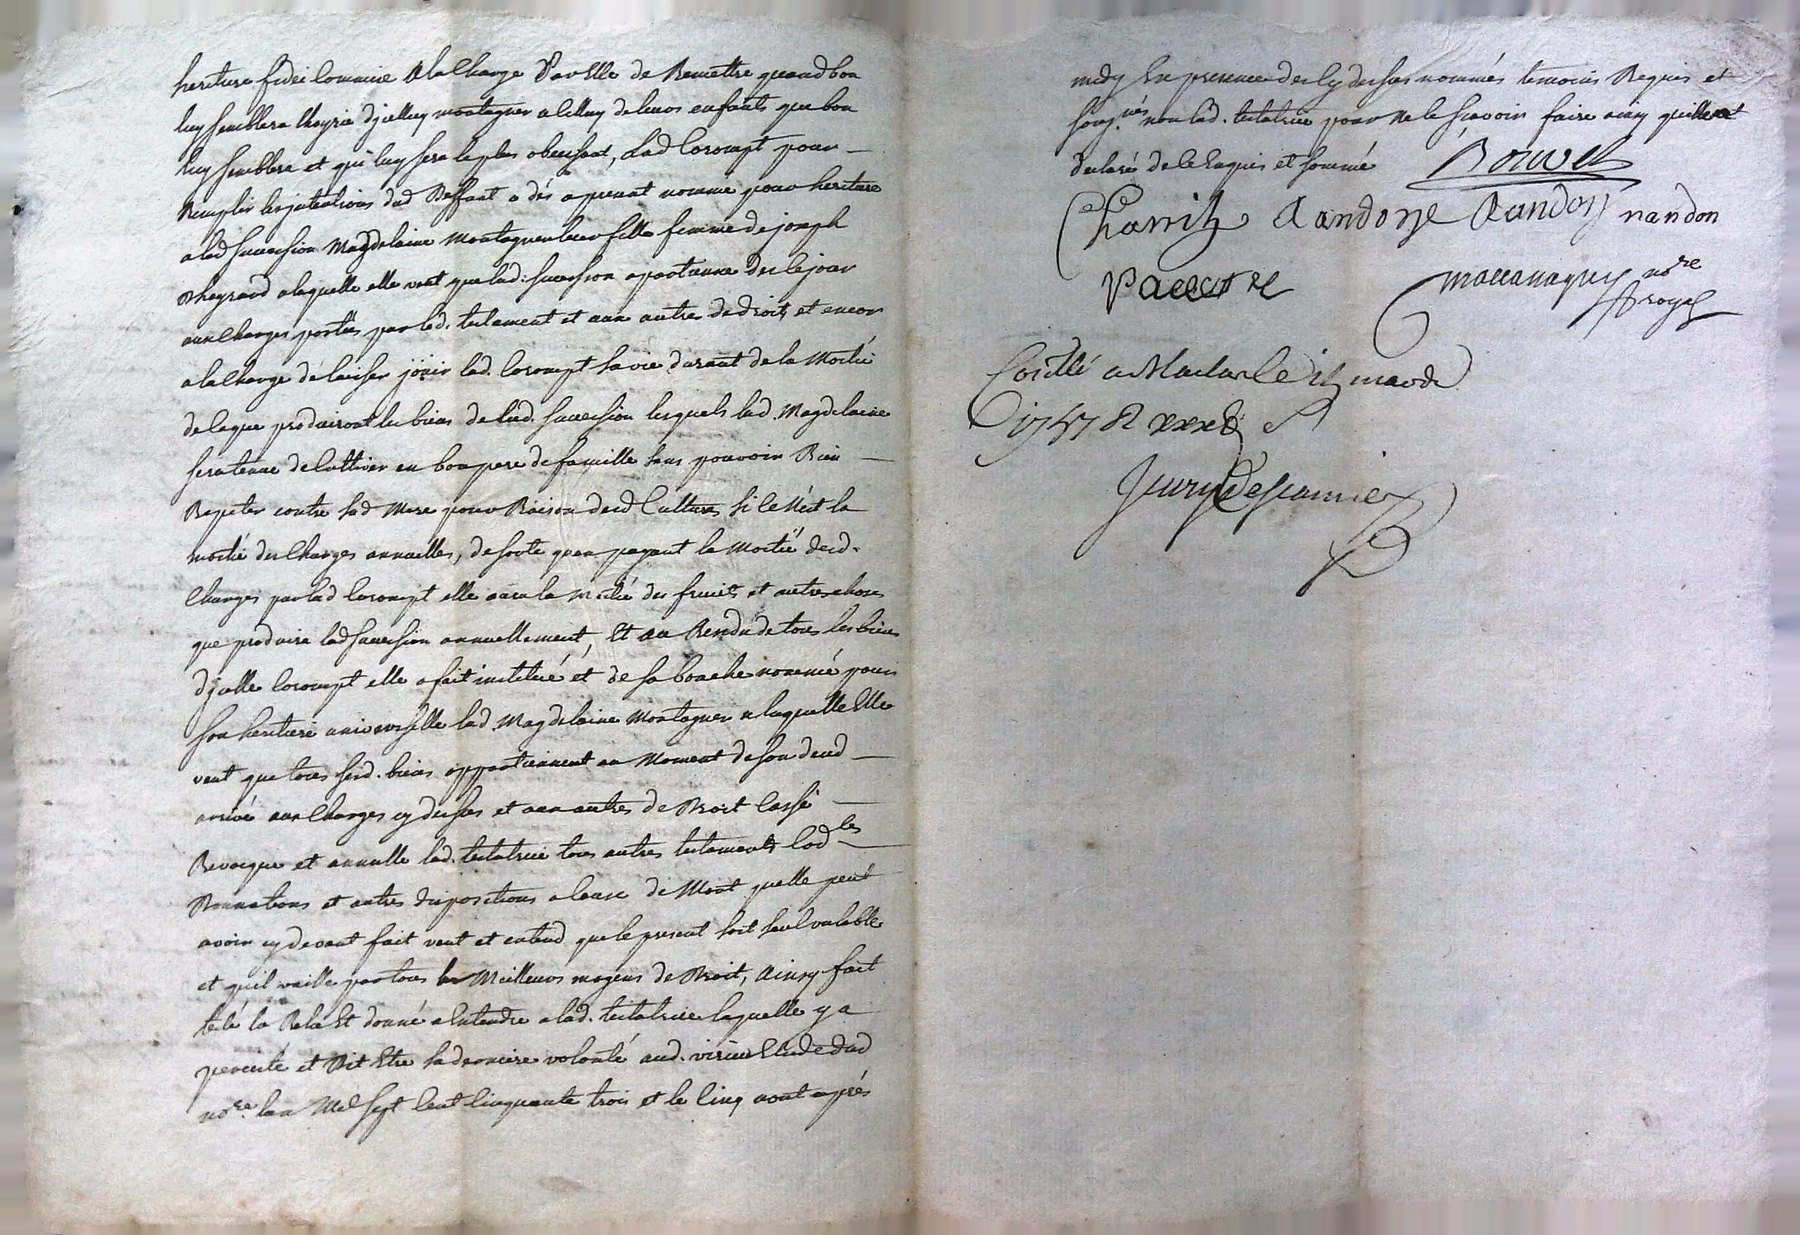 heritiere fidei Commise A la Charge Par Elle de Remettre quand bon
luy semblera Lhoyrie djcelluy montagner a celluy de leurs enfants que bon
luy semblera et qui luy sera le plus obeissant, Lad Corompt pour
Remplir les jntentions dud Deffunt a dés apresent nommé pour heritiere
a lad succession Magdelaine Montagner leur fille femme de joseph
Rheynaud a laquelle elle veut que lad. succession apartienne des le jour
aux Charges portées par led. testament et aux autres de droit, et encor
a la Charge de laisser jouir lad. Corompt sa vie durant de la Moitié
de ce que produiront les biens de lad. succession lesquels lad. Magdelaine
sera tenue de Cultiver en bon pere de famille sans pouvoir Rien
Repeter contre sad Mere pour Raison de lad Culture si ce N'est la
moitié des Charges annuelles, de sorte quen payant la Moitié desd.
Charges par lad Corompt elle aura la moitié des fruits et autres choses
que produira lad succession annuellement, Et au Rendu de tous les biens
djcelle Corompt elle a fait institué et de sa bouche nommé pour
son heritiere universelle lad. Magdelaine Montagner a laquelle Elle
veut que tous sesd. biens appartiennent au Moment de son deced
arrivé aux Charges cy dessus et aux autres de Droit Cassé
Revoque et annulle lad. testatrice tous autres testaments Cod les
Donnations et autres dispositions a Cause de Mort quelle peut
avoir cy devant fait veut et entend que le present soit seul valable
et quil vaille par tous les Meilleurs moyens de Droit, Ainsy fait
leu la Relu Et donné a Entendre a lad. testatrice laquelle y a
percisté et Dit Etre sa derniere volonté aud. virieu Etude dud
no.re lan Mil sept Cent Cinquante trois et le Cinq aout aprés
midy En presence des Cy dessus nommés temoins Requis et
soussignés non lad. testatrice pour ne le scavoir faire ainsy quelle a
declaré de ce Enquis et sommé Bouvet
Charrin nandon
no.re